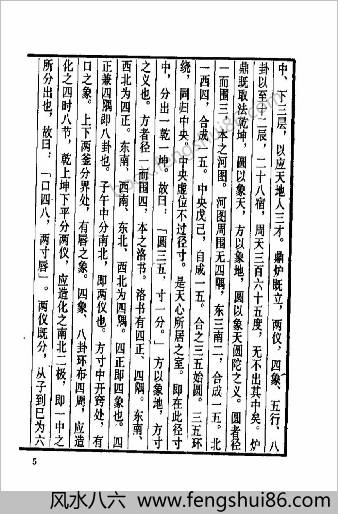 中、下三层，以应天地人三才。鼎炉既立，两仪，四象、五行、八
卦以至十二辰，二十八宿，周天三百六十五度，无不出其中矣。炉
鼎既取法乾坤，圆以象天，方以象地，圆以象天圆陀之义。圆者径
一而围三，本之河图。河图周围无四隅，东三南二，合成一五。北
一西四，合成一五。中央戊己，自成一五。合之三五始圆。三五环
绕，同归中央，中央虚位不过径寸。是天心所居之室。即在此径寸
中，分出一乾一坤，故曰：「圆三五，寸一分。」方以象地，方寸
之义也。方者径一而围四，本之洛书。洛书有四正、四隅。东南、
西北为四正。东南、西南、东北、西北为四隅。四正即四象也。四
正兼四隅即八卦也。子午中分南北，即两仪也。方寸中开窍处，有
口之象。上下两釜分界处，有唇之象。四象、八卦环布四周，应造
化之四时八节，乾上坤下平分两仪，应造化之南北二极，即一中之
所分出也，故曰：「口四八，两寸唇」。两仪既分，从子到巳为六
5
风水八六 - www.fengshui86.com